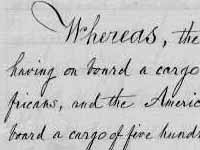 Whereas, the
having on board a cargo
fricans, and the Americ
board a cargo of five hundr